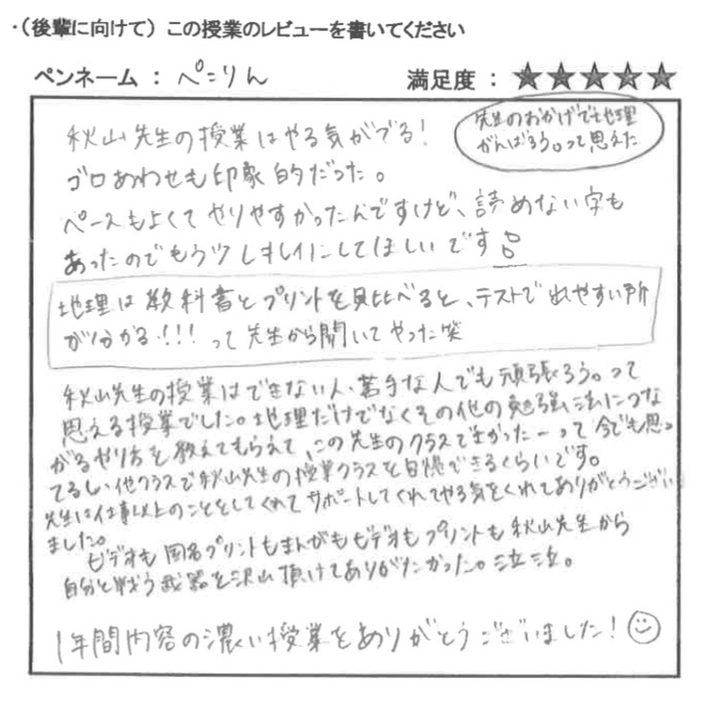 ・(後輩に向けて) この授業のレビューを書いてください
ペンネーム : ぺこりん 満足度 : ★★★★★
先生のおかげで地理
がんばろう。って思えた
秋山先生の授業はやる気がでる!
ゴロあわせも印象的だった。
ペースもよくてやりやすかったんですけど、読めない字も
あったのでもう少しキレイにしてほしいです
地理は教科書とプリントを見比べると、テストで出やすい所
が分かる!!! って先生から聞いてやった笑
秋山先生の授業はできない人、苦手な人でも頑張ろう。って
思える授業でした。地理だけでなくその他の勉強法につな
がるやり方を教えてもらえて、この先生のクラスでよかったーって今でも思っ
てるし、他クラスで秋山先生の授業クラスを自慢できるくらいです。
先生は仕事以上のことをしてくれてサポートしてくれてやる気をくれてありがとうござい
ました。
ビデオも国名プリントもまんがもビデオもプリントも秋山先生から
自分と戦う武器を沢山頂けてありがたかった。泣泣。
1年間内容の濃い授業をありがとうございました!